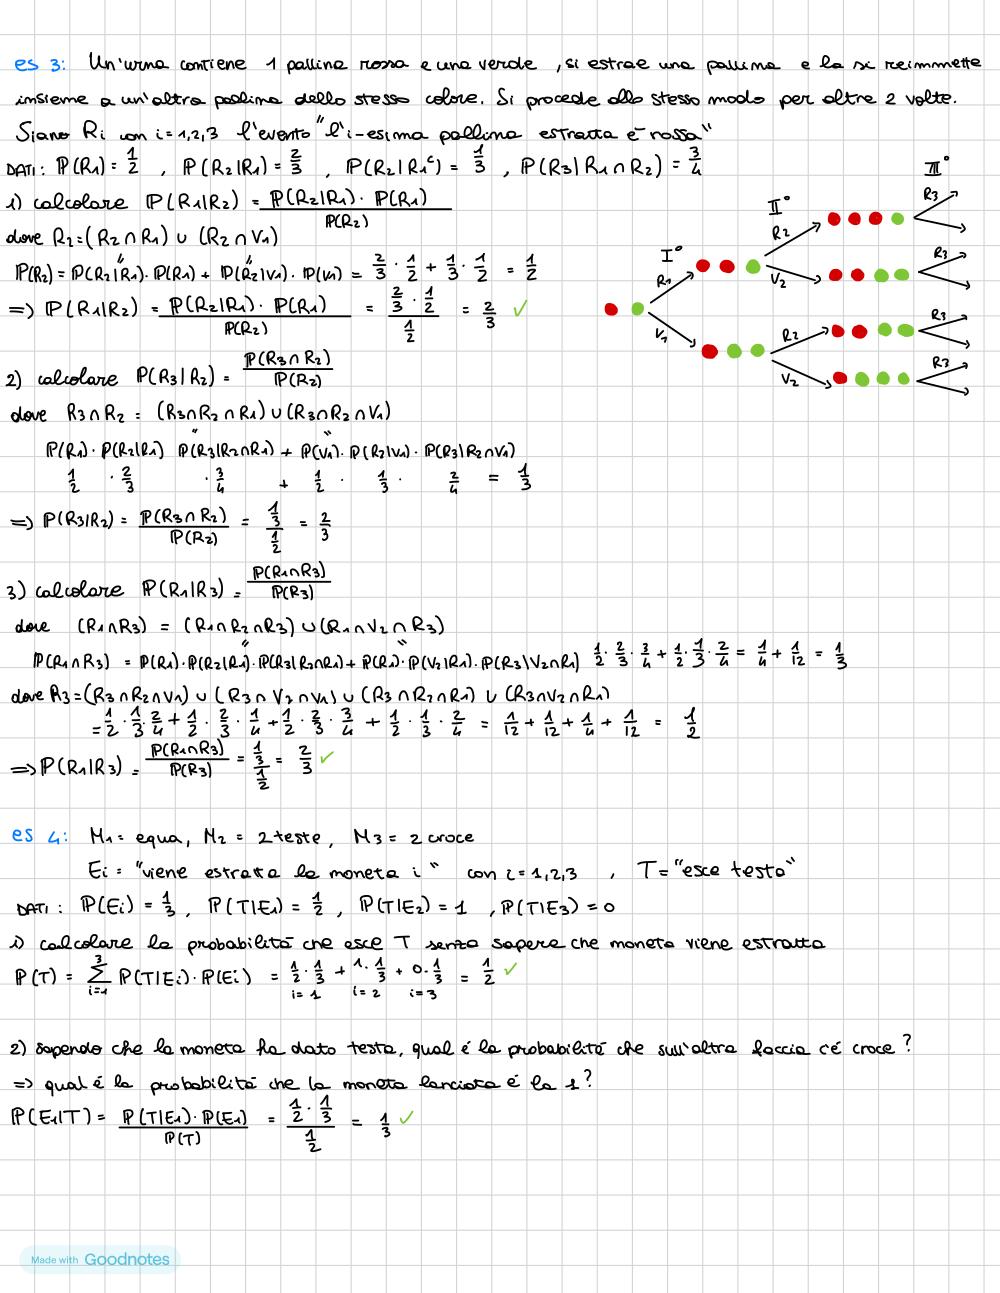 es 3: Un'urna contiene 1 pallina rossa e una verde, si estrae una pallina e la si reimmette
insieme a un'altra pallina dello stesso colore. Si procede allo stesso modo per altre 2 volte.
Siano Ri con i=1,2,3 l'evento "l'i-esima pallina estratta è rossa"
DATI: P(R1) = 1/2 , P(R2|R1) = 2/3 , P(R2|R1^c) = 1/3 , P(R3|R1∩R2) = 3/4
1) calcolare P(R1|R2) = P(R2|R1)·P(R1) / P(R2)
dove R2 = (R2∩R1) ∪ (R2∩V1)
P(R2) = P(R2|R1)·P(R1) + P(R2|V1)·P(V1) = 2/3 · 1/2 + 1/3 · 1/2 = 1/2
=> P(R1|R2) = P(R2|R1)·P(R1) / P(R2) = (2/3 · 1/2) / (1/2) = 2/3 ✓
I° II° III°
R1 V1 R2 V2 R2 V2 R3 R3 R3 R3
2) calcolare P(R3|R2) = P(R3∩R2) / P(R2)
dove R3∩R2 = (R3∩R2∩R1) ∪ (R3∩R2∩V1)
P(R1)·P(R2|R1) P(R3|R2∩R1) + P(V1)·P(R2|V1)·P(R3|R2∩V1)
1/2 · 2/3 · 3/4 + 1/2 · 1/3 · 2/4 = 1/3
=> P(R3|R2) = P(R3∩R2) / P(R2) = (1/3) / (1/2) = 2/3
3) calcolare P(R1|R3) = P(R1∩R3) / P(R3)
dove (R1∩R3) = (R1∩R2∩R3) ∪ (R1∩V2∩R3)
P(R1∩R3) = P(R1)·P(R2|R1)·P(R3|R2∩R1) + P(R1)·P(V2|R1)·P(R3|V2∩R1) 1/2 · 2/3 · 3/4 + 1/2 · 1/3 · 2/4 = 1/4 + 1/12 = 1/3
dove R3 = (R3∩R2∩V1) ∪ (R3∩V2∩V1) ∪ (R3∩R2∩R1) ∪ (R3∩V2∩R1)
= 1/2 · 1/3 · 2/4 + 1/2 · 2/3 · 1/4 + 1/2 · 2/3 · 3/4 + 1/2 · 1/3 · 2/4 = 1/12 + 1/12 + 1/4 + 1/12 = 1/2
=> P(R1|R3) = P(R1∩R3) / P(R3) = (1/3) / (1/2) = 2/3 ✓
es 4: M1 = equa, M2 = 2 teste, M3 = 2 croce
Ei = "viene estratta la moneta i" con i=1,2,3 , T = "esce testa"
DATI: P(Ei) = 1/3 , P(T|E1) = 1/2 , P(T|E2) = 1 , P(T|E3) = 0
1) calcolare la probabilità che esce T senza sapere che moneta viene estratta
P(T) = Σ_{i=1}^{3} P(T|Ei)·P(Ei) = 1/2 · 1/3 + 1 · 1/3 + 0 · 1/3 = 1/2 ✓
i=1 i=2 i=3
2) sapendo che la moneta ha dato testa, qual é la probabilità che sull'altra faccia c'é croce?
=> qual é la probabilità che la moneta lanciata é la 1?
P(E1|T) = P(T|E1)·P(E1) / P(T) = (1/2 · 1/3) / (1/2) = 1/3 ✓
Made with Goodnotes